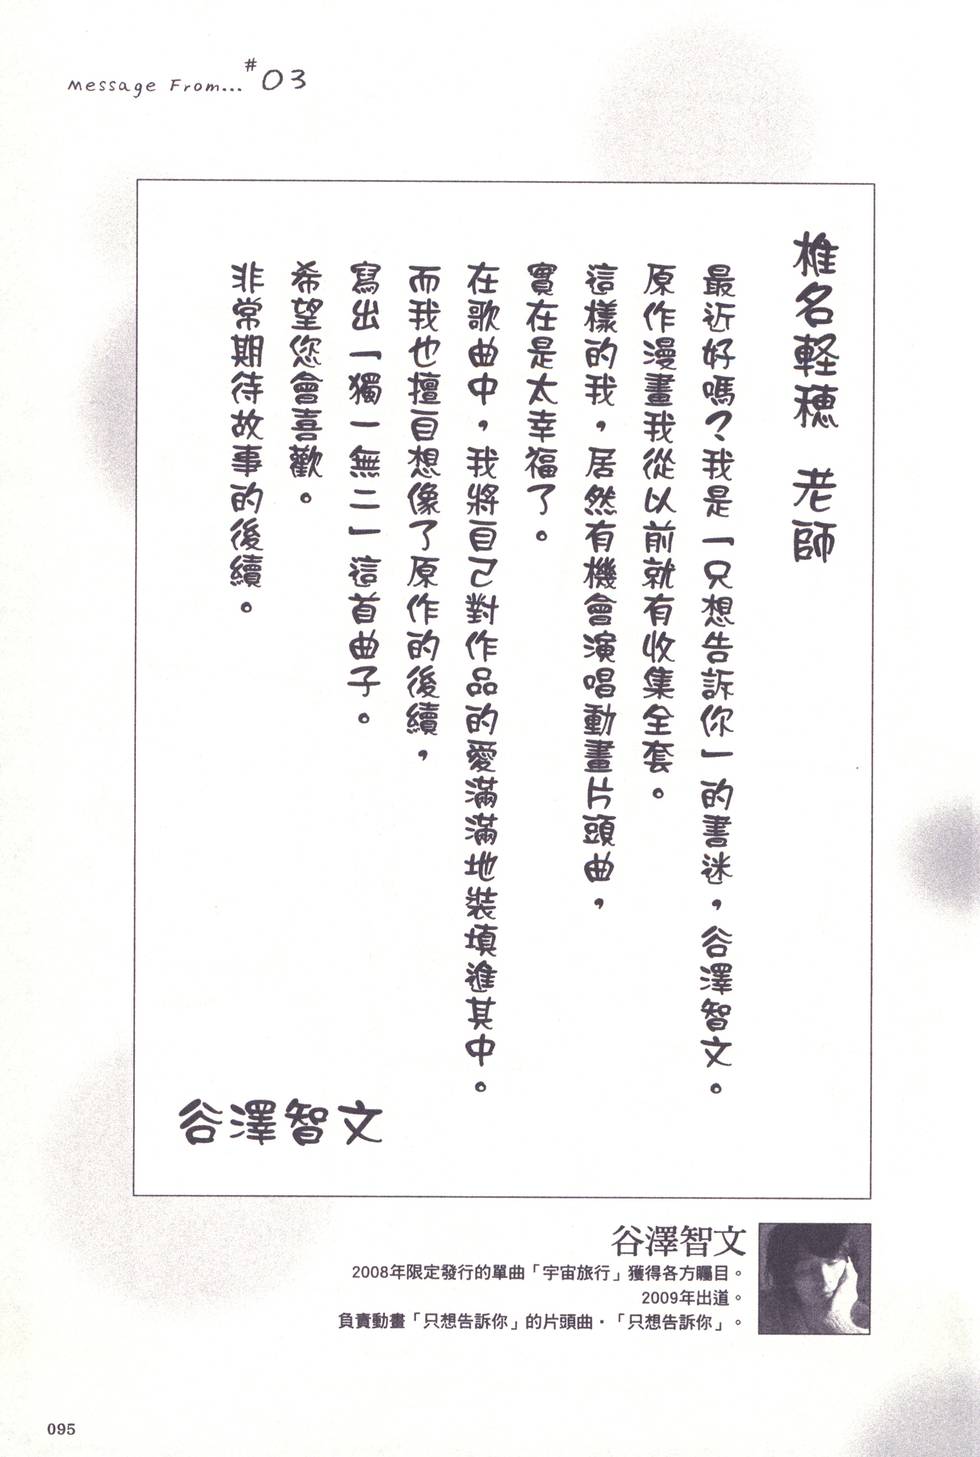 Message From... #03
椎名軽穂 老師
最近好嗎？我是「只想告訴你」的書迷，谷澤智文。
原作漫畫我從以前就有收集全套。
這樣的我，居然有機會演唱動畫片頭曲，
實在是太幸福了。
在歌曲中，我將自己對作品的愛滿滿地裝填進其中。
而我也擅自想像了原作的後續，
寫出「獨一無二」這首曲子。
希望您會喜歡。
非常期待故事的後續。
谷澤智文
谷澤智文
2008年限定發行的單曲「宇宙旅行」獲得各方矚目。
2009年出道。
負責動畫「只想告訴你」的片頭曲・「只想告訴你」。
095